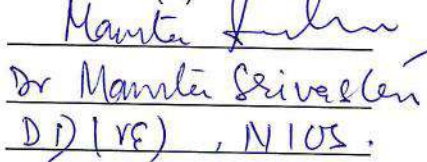 Mamta
Dr Mamta Srivastav
DD (VE), NIOS.